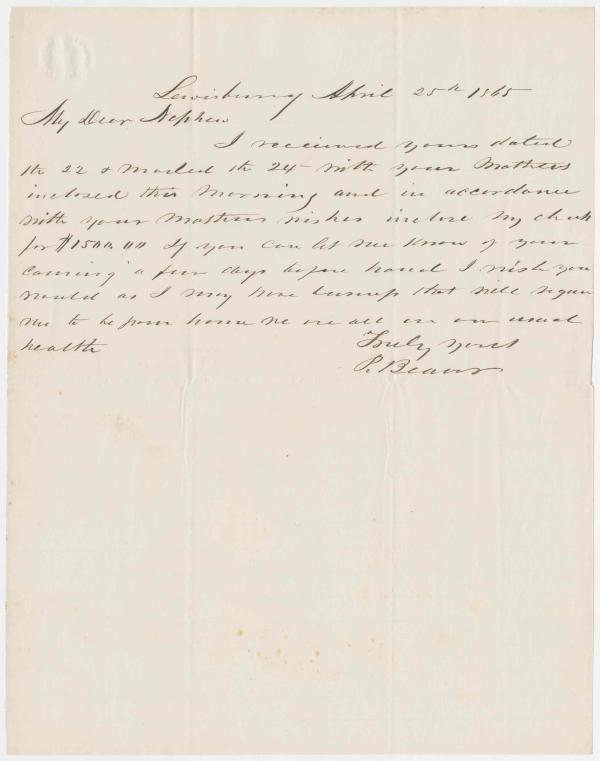 Lewisburg April 25th 1865
My Dear Nephew
I received yours dated
the 22 & mailed the 24 with your Mothers
inclosed this Morning and in accordance
with your Mothers wishes inclose my check
for $1500.00 If you can let me know of your
coming a few days before hand I wish you
would as I may have business that will requir
me to be from home we are all in our usual
health Truly yours
P. Beaver